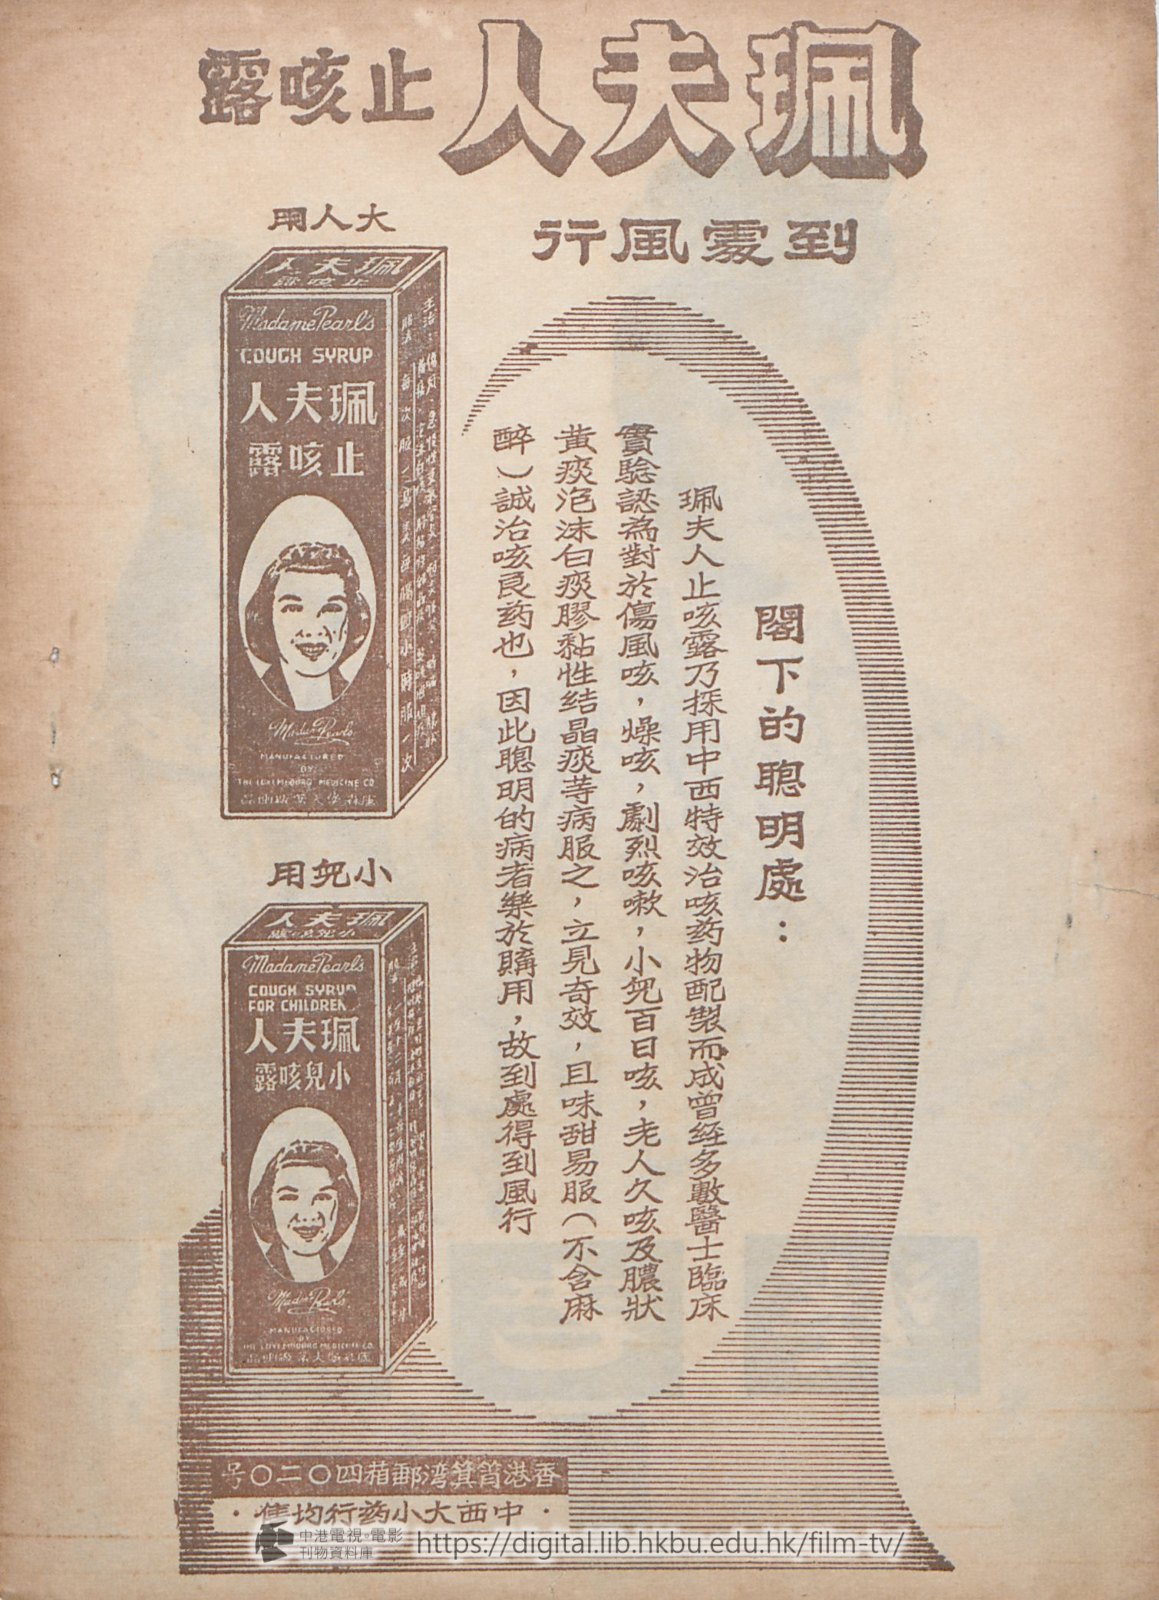 珮夫人止咳露
到處風行
閣下的聰明處：
珮夫人止咳露乃採用中西特效治咳葯物配製而成曾経多數醫士臨床
實驗認為對於傷風咳，燥咳，劇烈咳嗽，小兒百日咳，老人久咳及膿狀
黃痰泡沫白痰膠黏性结晶痰等病服之，立見奇效，且味甜易服（不含麻
醉）誠治咳良葯也，因此聰明的病者樂於購用，故到處得到風行
大人用
珮夫人
止咳露
Madame Pearl's
COUGH SYRUP
珮夫人
止咳露
Madame Pearl's
MANUFACTURED
BY
THE LUXEMBOURG MEDICINE CO.
小兒用
珮夫人
小兒咳露
Madame Pearl's
COUGH SYRUP
FOR CHILDREN
珮夫人
小兒咳露
Madame Pearl's
MANUFACTURED
BY
THE LUXEMBOURG MEDICINE CO.
香港筲箕湾郵箱四〇二〇号
·中西大小葯行均售·
中港電視·電影
刊物資料庫
https://digital.lib.hkbu.edu.hk/film-tv/